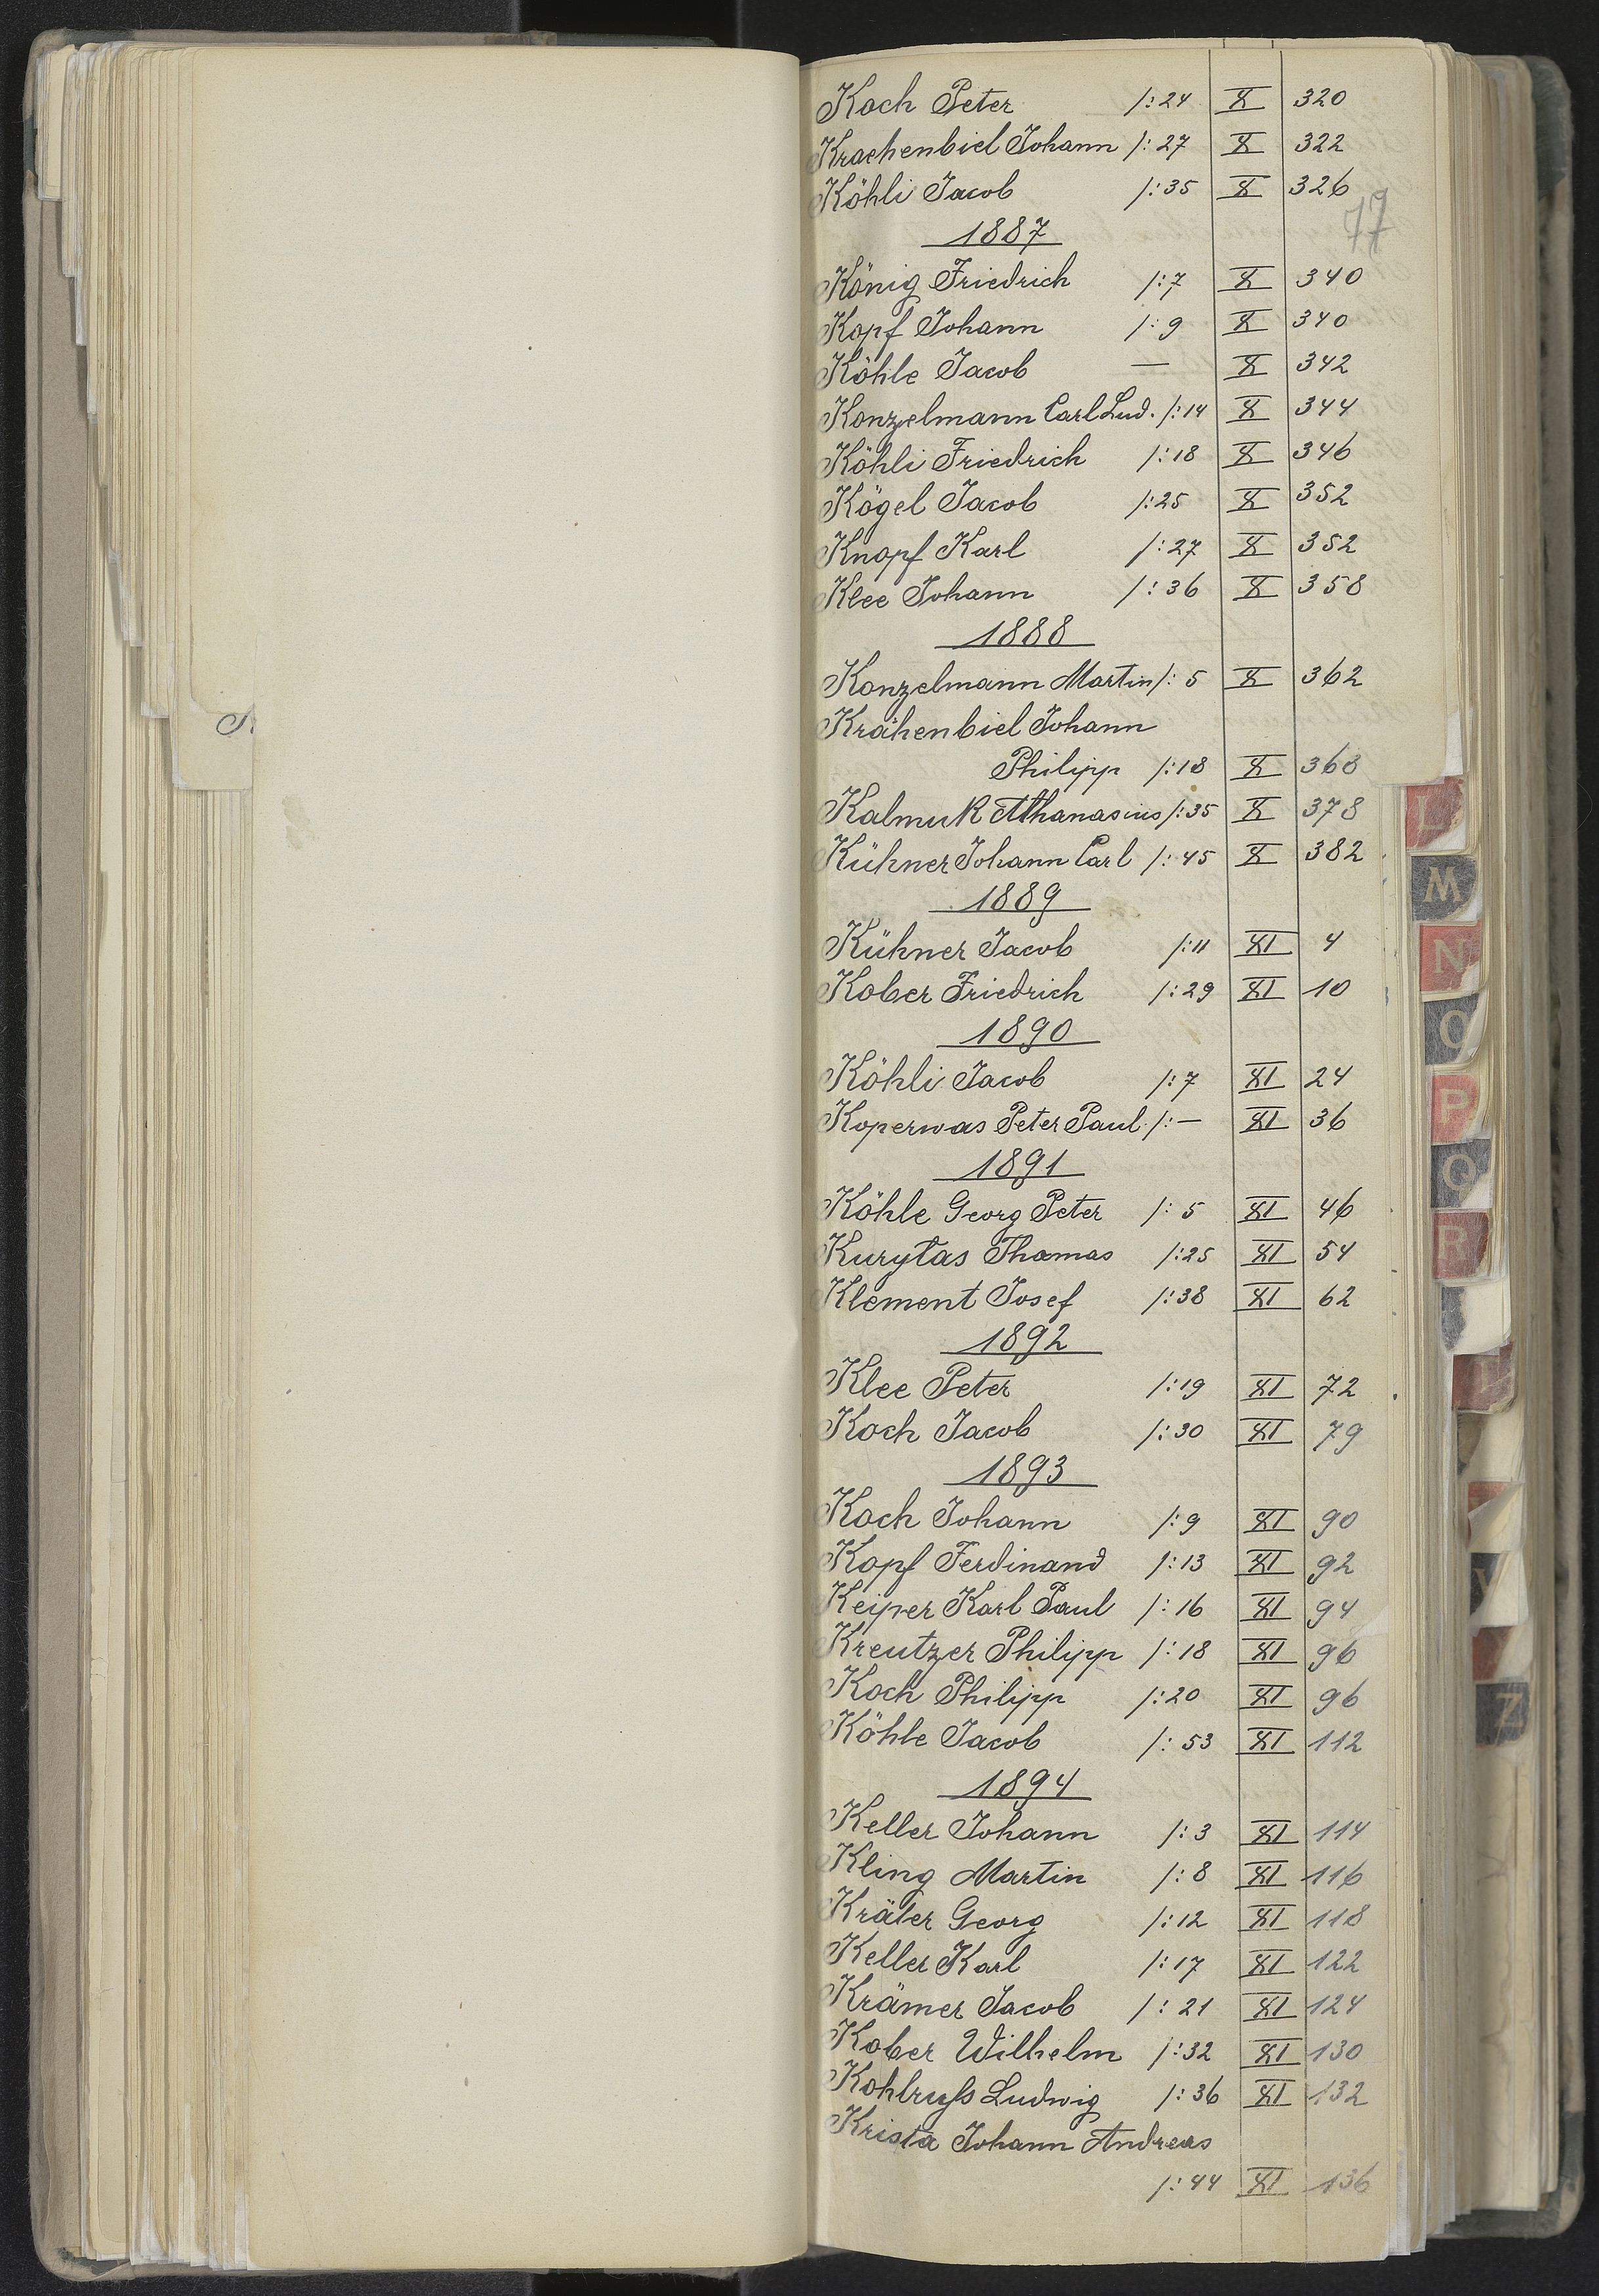 Koch Peter /: 24 X 320
Krachenbiel Johann /: 27 X 322
Köhli Jacob /: 35 X 326
77
1887
König Friedrich /: 7 X 340
Kopf Johann /: 9 X 340
Köhle Jacob — X 342
Konzelmann Carl Lud. /: 14 X 344
Köhli Friedrich /: 18 X 346
Kögel Jacob /: 25 X 352
Knopf Karl /: 27 X 352
Klee Johann /: 36 X 358
1888
Konzelmann Martin /: 5 X 362
Krähenbiel Johann
Philipp /: 18 X 368
Kalmuk Athanasius /: 35 X 378
Kühner Johann Carl /: 45 X 382
1889
Kühner Jacob /: 11 XI 4
Kober Friedrich /: 29 XI 10
1890
Köhli Jacob /: 7 XI 24
Koperwas Peter Paul /: — XI 36
1891
Köhle Georg Peter /: 5 XI 46
Kurytas Thomas /: 25 XI 54
Klement Josef /: 38 XI 62
1892
Klee Peter /: 19 XI 72
Koch Jacob /: 30 XI 79
1893
Koch Johann /: 9 XI 90
Kopf Ferdinand /: 13 XI 92
Keiper Karl Paul /: 16 XI 94
Kreutzer Philipp /: 18 XI 96
Koch Philipp /: 20 XI 96
Köhle Jacob /: 53 XI 112
1894
Keller Johann /: 3 XI 114
Kling Martin /: 8 XI 116
Kräter Georg /: 12 XI 118
Keller Karl /: 17 XI 122
Krämer Jacob /: 21 XI 124
Kober Wilhelm /: 32 XI 130
Kohlruß Ludwig /: 36 XI 132
Krista Johann Andreas
/: 44 XI 136
L
M
N
O
P
Q
R
V
Z